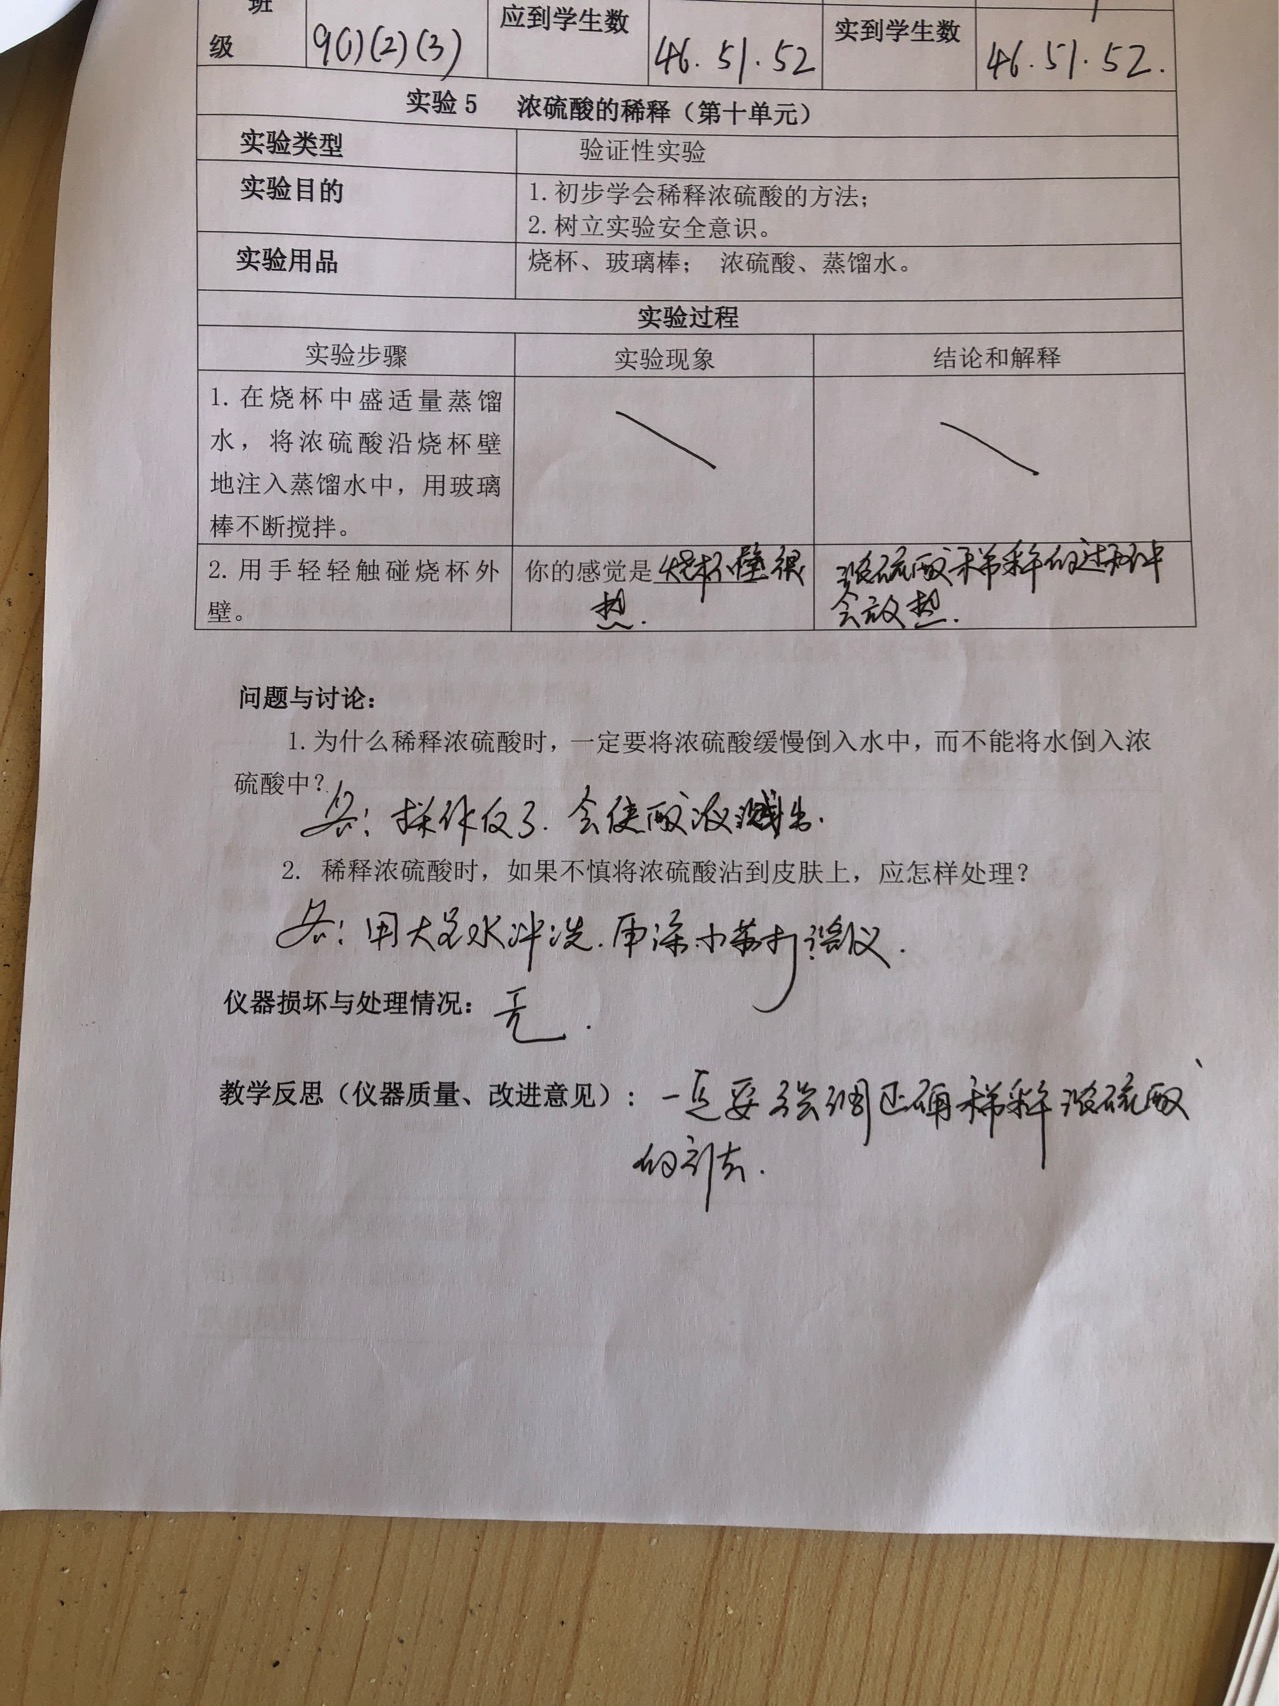 班
级 9(1)(2)(3) 应到学生数 46.51.52 实到学生数 46.51.52.
实验5 浓硫酸的稀释（第十单元）
实验类型 验证性实验
实验目的 1.初步学会稀释浓硫酸的方法；
2.树立实验安全意识。
实验用品 烧杯、玻璃棒； 浓硫酸、蒸馏水。
实验过程
实验步骤 实验现象 结论和解释
1.在烧杯中盛适量蒸馏
水，将浓硫酸沿烧杯壁
地注入蒸馏水中，用玻璃
棒不断搅拌。
2.用手轻轻触碰烧杯外 你的感觉是烧杯壁很 浓硫酸稀释的过程中
壁。 热. 会放热.
问题与讨论：
1.为什么稀释浓硫酸时，一定要将浓硫酸缓慢倒入水中，而不能将水倒入浓
硫酸中？
答：操作反了.会使酸液溅出.
2. 稀释浓硫酸时，如果不慎将浓硫酸沾到皮肤上，应怎样处理？
答：用大量水冲洗.再涂小苏打溶液.
仪器损坏与处理情况：无.
教学反思（仪器质量、改进意见）：一定要强调正确稀释浓硫酸
的方法.